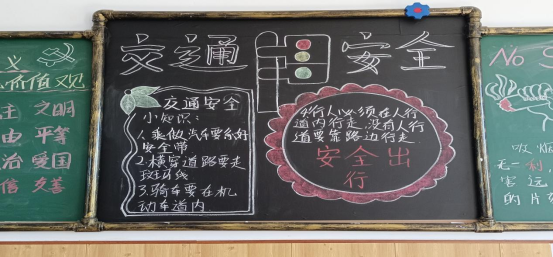 义
价值观
主 文明
由 平等
治 爱国
信 友善
交通安全
交通安全
小知识:
1.乘做汽车要系好
安全带
2.横穿道路要走
斑马线
3.骑车要在机
动车道内
4.行人必须在人行
道内行走,没有人行
道要靠路边行走
安全出
行
No S
吸烟
无一利,
害远
的片